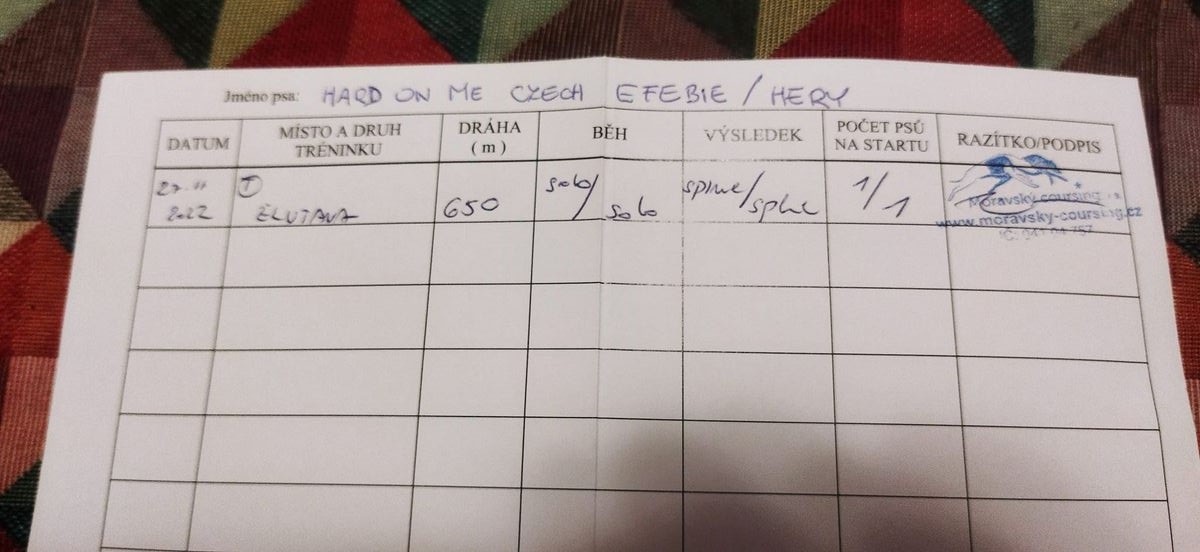 Jméno psa: HARD ON ME CZECH EFEBIE / HERY
DATUM
MÍSTO A DRUH
TRÉNINKU
DRÁHA
( m )
BĚH
VÝSLEDEK
POČET PSŮ
NA STARTU
RAZÍTKO/PODPIS
27.11
2022
T
ŽLUTAVA
650
solo/
solo
splnil/
splnil
1/1
Moravský coursing
www.moravsky-coursing.cz